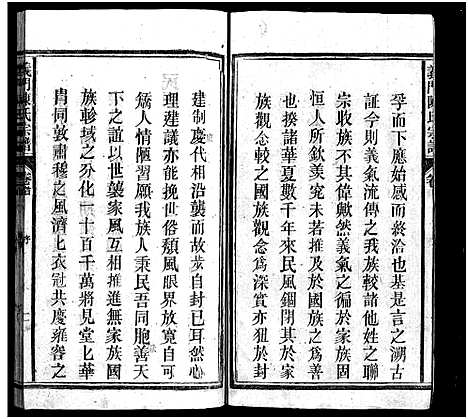 義門陳氏宗譜 卷首
孚而下應始感而涣若是言之溯古
証今則義氣流傳之我族其姓之聯
宗收族不其偉歟然義氣之徧於家族
恒人所欽羨究未若推及於國族之為善
探諸華夏數千年來民風錮閉其其於
族觀念較之國族觀念為深實亦狃於封
建制慶代相沿襲而故步自封已耳然心
理建議亦能挽世俗頽風眼界放寬自可
矯人情陋習願我族人秉民吾同胞善天
下之誼以世襲家風互相推進無家族國
族軫域之分化一十百千萬將見堂上華
胄同敦肅穆之風濟上衣冠共慶雍容之
義門陳氏宗譜 卷首 序